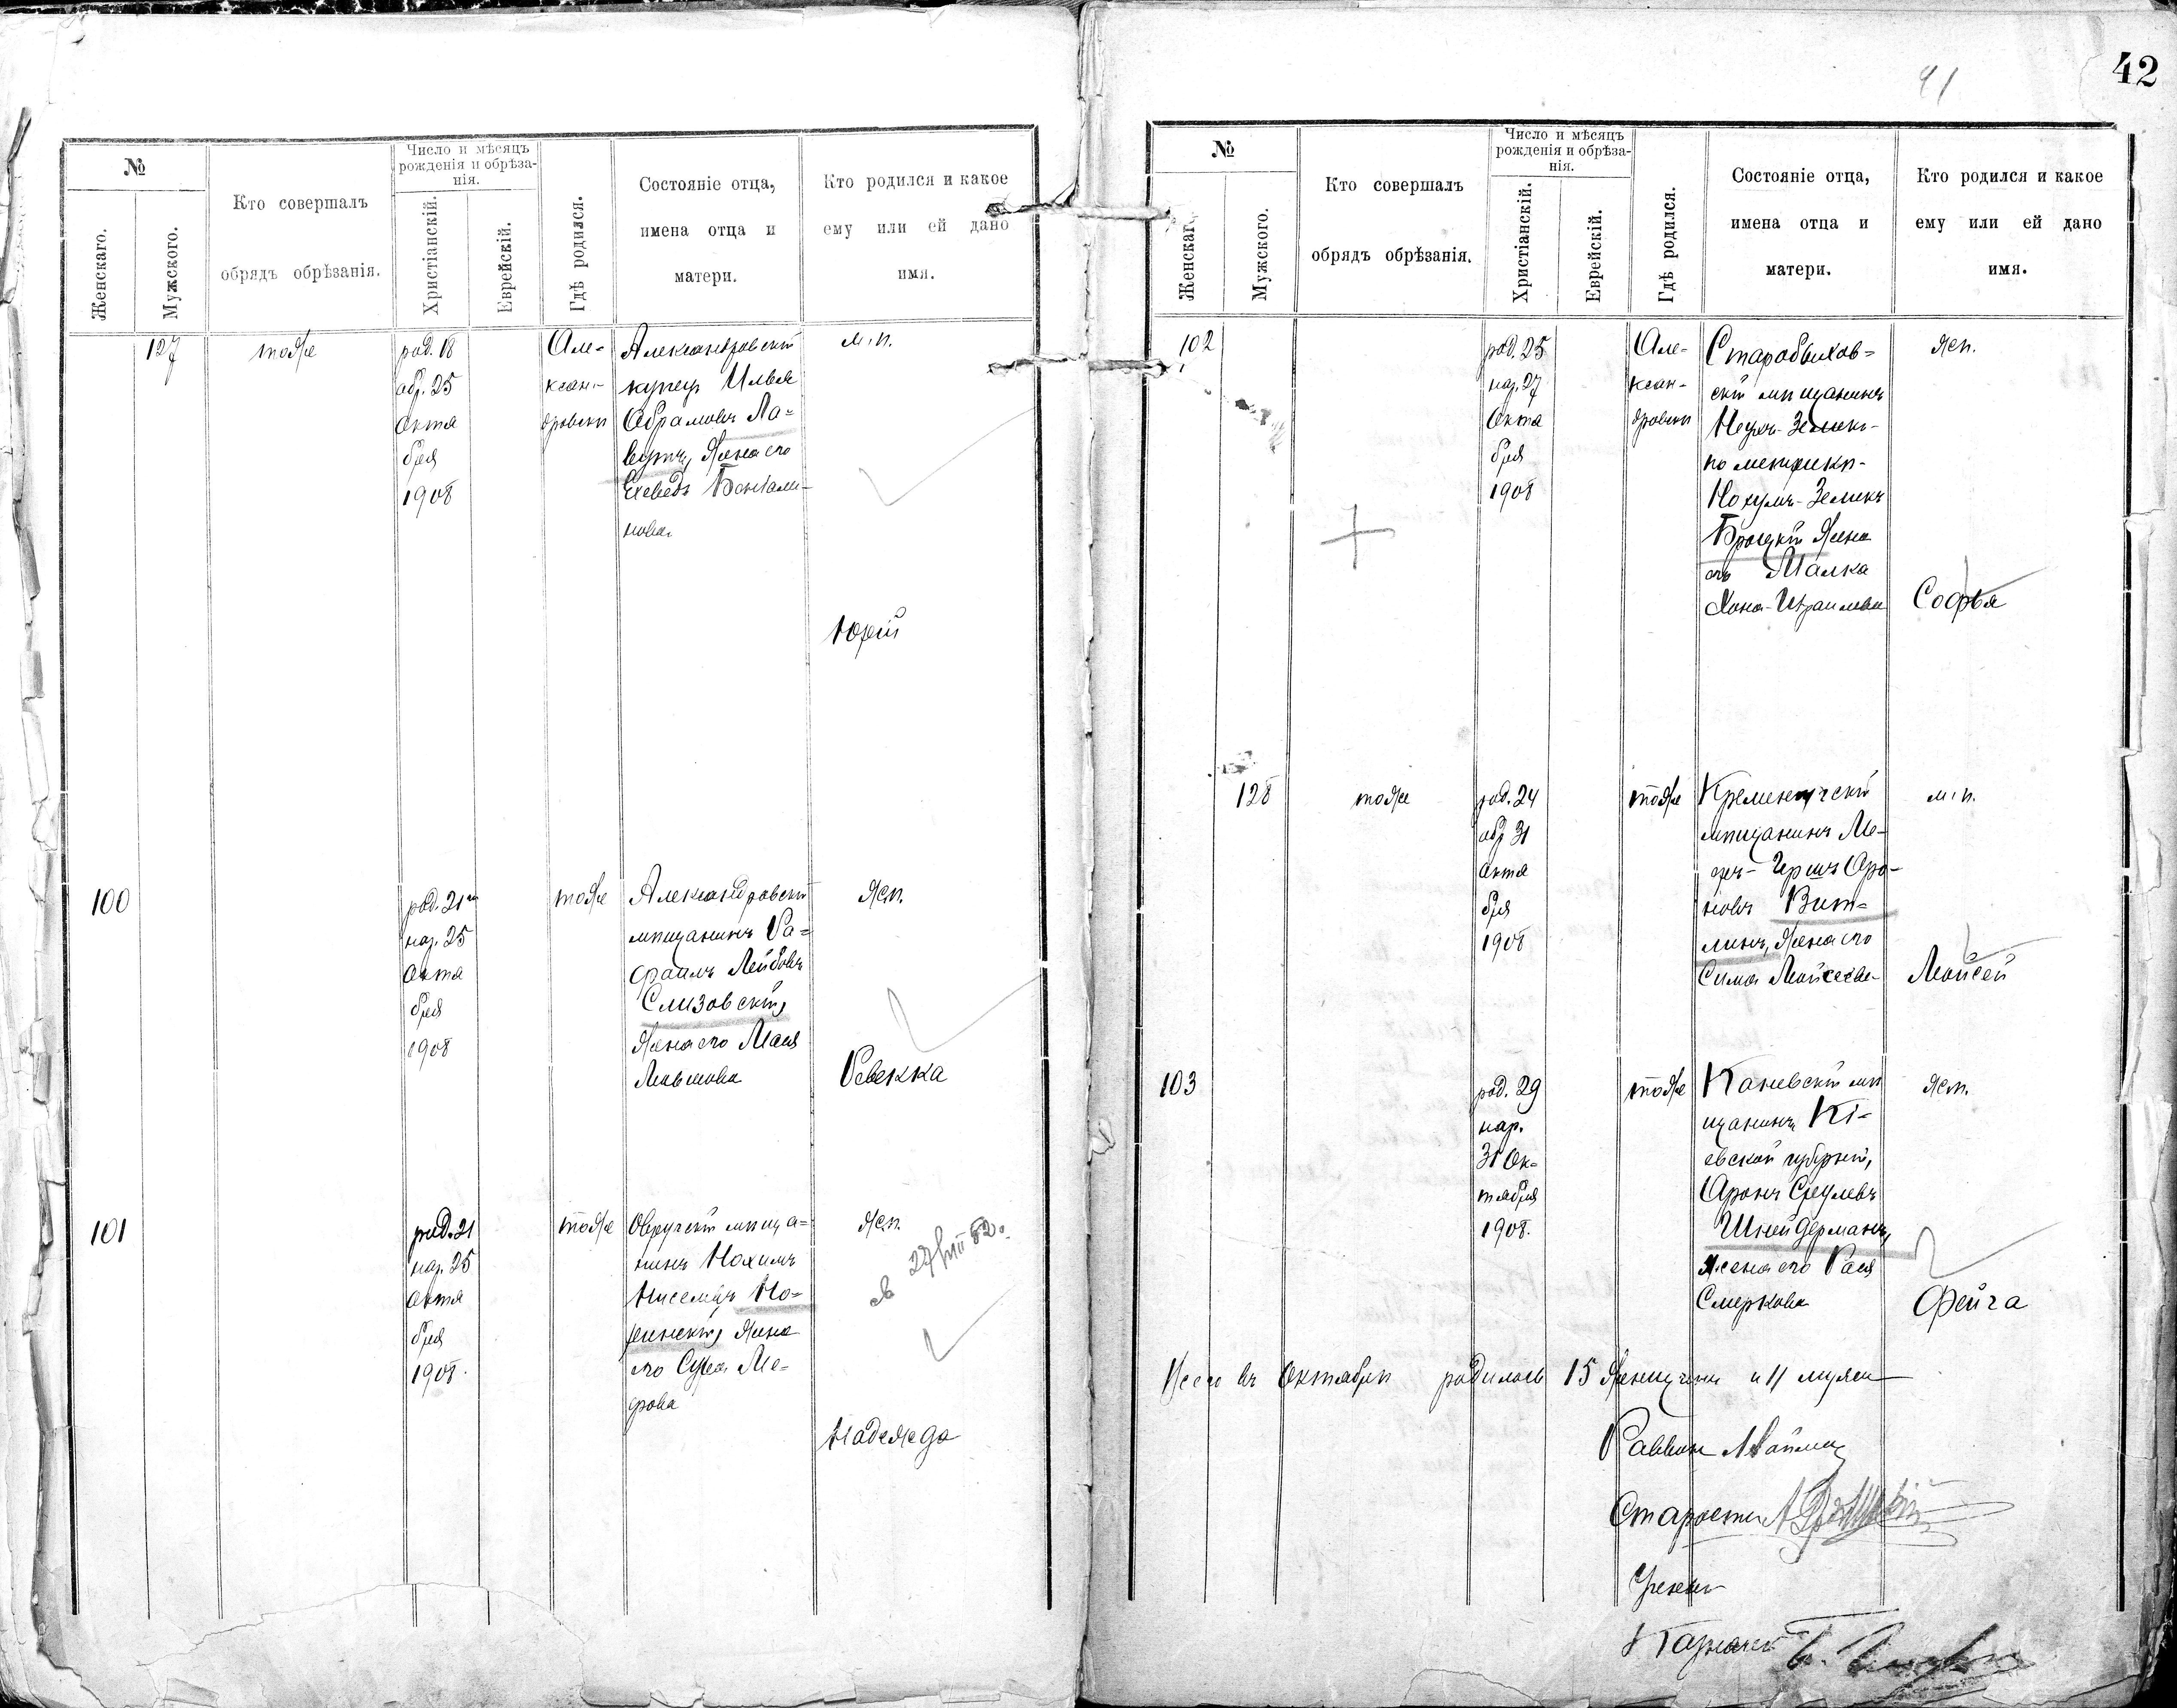 42
41
№
Женскаго.
Мужского.
Кто совершалъ
обрядъ обрѣзанія.
Число и мѣсяцъ
рожденія и обрѣза-
нія.
Христіанскій.
Еврейскій.
Гдѣ родился.
Состояніе отца,
имена отца и
матери.
Кто родился и какое
ему или ей дано
имя.
127
тоже
род. 18
обр. 25
Октя
бря
1908
Але-
ксан-
дровскѣ
Александровскій
купецъ Илья
Абрамовъ Ла-
вутъ, жена его
Ехеведъ Беніами-
нова
м. п.
Юрій
100
род. 21го
нар. 25
Октя
бря
1908
тоже
Александровскій
мѣщанинъ Ра-
фаилъ Лейбовъ
Слизовскій,
жена его Мася
Мовшова
ж. п.
Ревекка
101
род. 21
нар. 25
Октя
бря
1908.
тоже
Овручскій мѣща-
нинъ Нохимъ
жена
его
ж. п.
Надежда
№
Женскаго
Мужского.
Кто совершалъ
обрядъ обрѣзанія.
Число и мѣсяцъ
рожденія и обрѣза-
нія.
Христіанскій.
Еврейскій.
Гдѣ родился.
Состояніе отца,
имена отца и
матери.
Кто родился и какое
ему или ей дано
имя.
102
род. 25
нар. 27
Октя
бря
1908
Але-
ксан-
дровскѣ
Старобыхов-
скій мѣщанинъ
по метрикѣ-
Нохумъ-Зеликъ
Броцкій жена
его Малка
Хона-Израилева
ж. п.
Софья
128
тоже
род. 24
обр 31
Октя
бря
1908
тоже
Кременчугскій
мѣщанинъ Ме-
еръ-Гиршъ Аро-
новъ Вит-
линъ, жена его
Сима Мойсеева
м. п.
Мойсей
103
род. 29
нар.
31 Ок-
тября
1908.
тоже
Каневскій мѣ
щанинъ Кі-
евской губерніи,
Аронъ Срулевъ
Шнейдерманъ,
жена его Рася
Смеркова
ж. п.
Фейга
Всего въ Октябрѣ родилось 15 женщинъ и 11 мужчи
Раввинъ
Староста
Ученый
Казначей